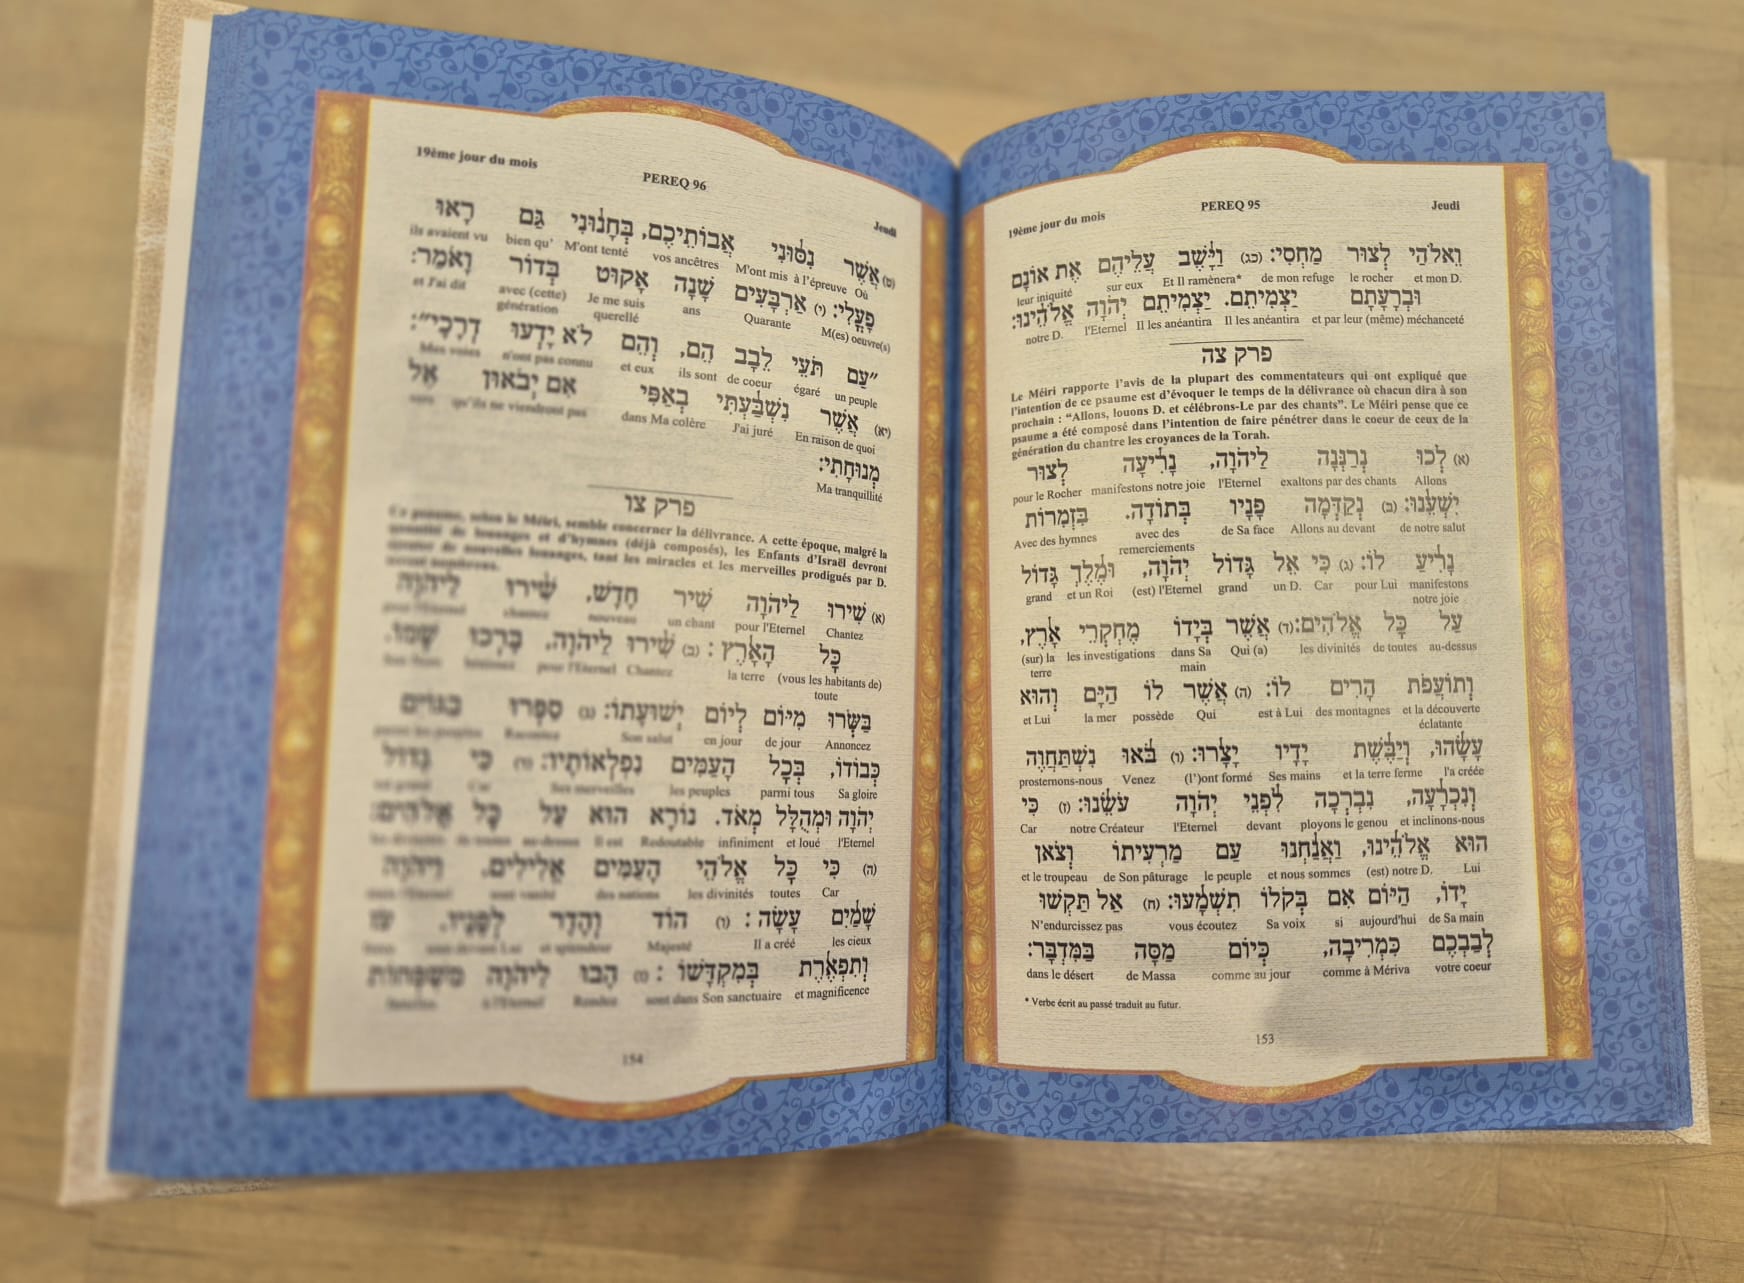 19ème jour du mois PEREQ 95 Jeudi
וֵאלֹהַי לְצוּר מַחְסִי: (כג) וַיָּשֶׁב עֲלֵיהֶם אֶת אוֹנָם
leur iniquité sur eux Et Il ramènera* de mon refuge le rocher et mon D.
וּבְרָעָתָם יַצְמִיתֵם. יַצְמִיתֵם יְהֹוָה אֱלֹהֵינוּ:
notre D. l'Eternel Il les anéantira Il les anéantira et par leur (même) méchanceté
פרק צה
Le Méiri rapporte l'avis de la plupart des commentateurs qui ont expliqué que
l'intention de ce psaume est d'évoquer le temps de la délivrance où chacun dira à son
prochain : “Allons, louons D. et célébrons-Le par des chants”. Le Méiri pense que ce
psaume a été composé dans l'intention de faire pénétrer dans le coeur de ceux de la
génération du chantre les croyances de la Torah.
(א) לְכוּ נְרַנְּנָה לַיהֹוָה, נָרִיעָה לְצוּר
pour le Rocher manifestons notre joie l'Eternel exaltons par des chants Allons
יִשְׁעֵנוּ: (ב) נְקַדְּמָה פָנָיו בְּתוֹדָה. בִּזְמִרוֹת
Avec des hymnes avec des remerciements de Sa face Allons au devant de notre salut
נָרִיעַ לוֹ: (ג) כִּי אֵל גָּדוֹל יְהֹוָה, וּמֶלֶךְ גָּדוֹל
grand et un Roi (est) l'Eternel grand un D. Car pour Lui manifestons notre joie
עַל כָּל אֱלֹהִים: (ד) אֲשֶׁר בְּיָדוֹ מֶחְקְרֵי אָרֶץ,
(sur) la terre les investigations dans Sa main Qui (a) les divinités de toutes au-dessus
וְתוֹעֲפֹת הָרִים לוֹ: (ה) אֲשֶׁר לוֹ הַיָּם וְהוּא
et Lui la mer possède Qui est à Lui des montagnes et la découverte éclatante
עָשָׂהוּ, וְיַבֶּשֶׁת יָדָיו יָצָרוּ: (ו) בֹּאוּ נִשְׁתַּחֲוֶה
prosternons-nous Venez (l')ont formé Ses mains et la terre ferme l'a créée
וְנִכְרָעָה, נִבְרְכָה לִפְנֵי יְהֹוָה עֹשֵׂנוּ: (ז) כִּי
Car notre Créateur l'Eternel devant ployons le genou et inclinons-nous
הוּא אֱלֹהֵינוּ, וַאֲנַחְנוּ עַם מַרְעִיתוֹ וְצֹאן
et le troupeau de Son pâturage le peuple et nous sommes (est) notre D. Lui
יָדוֹ, הַיּוֹם אִם בְּקֹלוֹ תִשְׁמָעוּ: (ח) אַל תַּקְשׁוּ
N'endurcissez pas vous écoutez Sa voix si aujourd'hui de Sa main
לְבַבְכֶם כִּמְרִיבָה, כְּיוֹם מַסָּה בַּמִּדְבָּר:
dans le désert de Massa comme au jour comme à Mériva votre coeur
* Verbe écrit au passé traduit au futur.
153
19ème jour du mois PEREQ 96 Jeudi
(ט) אֲשֶׁר נִסּוּנִי אֲבוֹתֵיכֶם, בְּחָנוּנִי גַּם רָאוּ
ils avaient vu bien qu' M'ont tenté vos ancêtres M'ont mis à l'épreuve Où
פָעֳלִי: (י) אַרְבָּעִים שָׁנָה אָקוּט בְּדוֹר וָאֹמַר:
et J'ai dit avec (cette) génération Je me suis querellé ans Quarante M(es) oeuvre(s)
"עַם תֹּעֵי לֵבָב הֵם, וְהֵם לֹא יָדְעוּ דְרָכָי":
Mes voies n'ont pas connu et eux ils sont de coeur égaré un peuple
(יא) אֲשֶׁר נִשְׁבַּעְתִּי בְאַפִּי אִם יְבֹאוּן אֶל
vers qu'ils ne viendront pas dans Ma colère J'ai juré En raison de quoi
מְנוּחָתִי:
Ma tranquillité
פרק צו
Ce psaume, selon le Méiri, semble concerner la délivrance. A cette époque, malgré la
quantité de louanges et d'hymnes (déjà composés), les Enfants d'Israël devront
ajouter de nouvelles louanges, tant les miracles et les merveilles prodigués par D.
seront nombreux.
(א) שִׁירוּ לַיהֹוָה שִׁיר חָדָשׁ, שִׁירוּ לַיהֹוָה
pour l'Eternel chantez nouveau un chant pour l'Eternel Chantez
כָּל הָאָרֶץ: (ב) שִׁירוּ לַיהֹוָה, בָּרְכוּ שְׁמוֹ.
bénissez pour l'Eternel Chantez la terre (vous les habitants de) toute
בַּשְּׂרוּ מִיּוֹם לְיוֹם יְשׁוּעָתוֹ: (ג) סַפְּרוּ בַגּוֹיִם
parmi les peuples Racontez Son salut en jour de jour Annoncez
כְּבוֹדוֹ, בְּכָל הָעַמִּים נִפְלְאוֹתָיו: (ד) כִּי גָדוֹל
Car Ses merveilles les peuples parmi tous Sa gloire
יְהֹוָה וּמְהֻלָּל מְאֹד. נוֹרָא הוּא עַל כָּל אֱלֹהִים:
les divinités de toutes au-dessus Il est Redoutable infiniment et loué l'Eternel
(ה) כִּי כָּל אֱלֹהֵי הָעַמִּים אֱלִילִים. וַיהֹוָה
mais l'Eternel sont vanité des nations les divinités toutes Car
שָׁמַיִם עָשָׂה: (ו) הוֹד וְהָדָר לְפָנָיו. עֹז
sont devant Lui et splendeur Majesté Il a créé les cieux
וְתִפְאֶרֶת בְּמִקְדָּשׁוֹ: (ז) הָבוּ לַיהֹוָה מִשְׁפְּחוֹת
à l'Eternel Rendez sont dans Son sanctuaire et magnificence
154